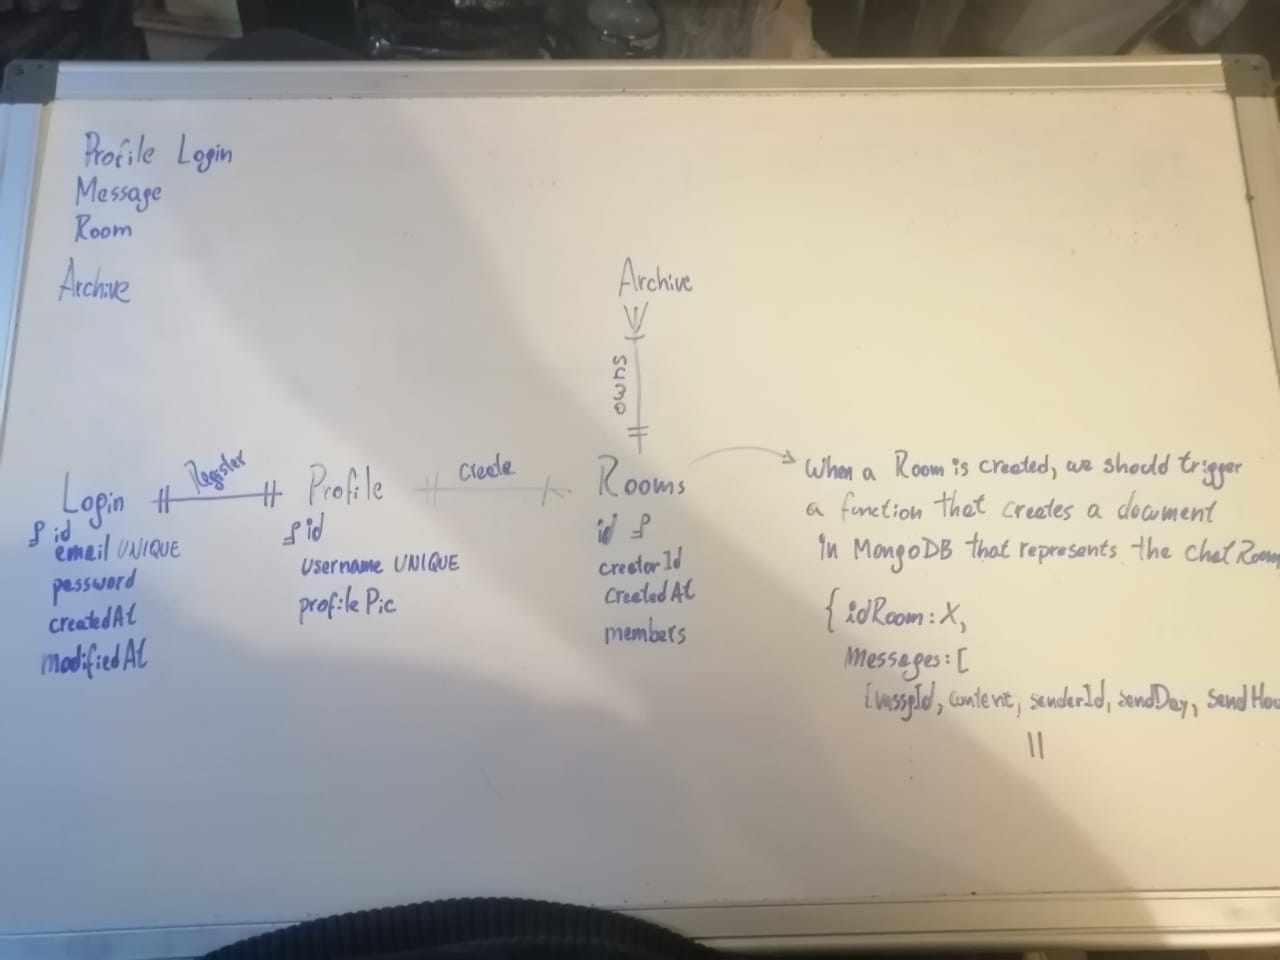 Profile Login
Message
Room
Archive
Archive
owns
Register
create
Login
id
email UNIQUE
password
createdAt
modifiedAt
Profile
id
username UNIQUE
profilePic
Rooms
id
creatorId
CreatedAt
members
When a Room is created, we should trigger
a function that creates a document
in MongoDB that represents the chat Room
{ idRoom: X,
Messages: [
content, senderId, sendDay, SendHou